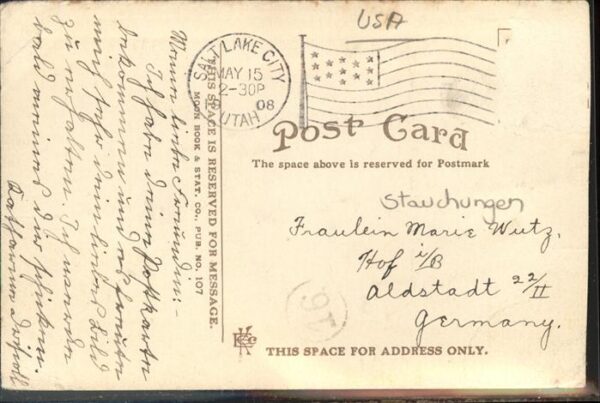 USA
SALT LAKE CITY
MAY 15
2-30P
08
UTAH
Post Card
The space above is reserved for Postmark
THIS SPACE IS RESERVED FOR MESSAGE.
MOON BOOK & STAT. CO., PUB. NO. 107
Meine liebe Freundin:-
Ich habe deine Postkarte
bekommen und es freute
mich sehr dein liebes Bild
zu erhalten. Ich werde
bald einmal dir schicken.
Stauchungen
Fraulein Marie Wutz.
Hof i/B
Aldstadt 22/II
Germany.
THIS SPACE FOR ADDRESS ONLY.